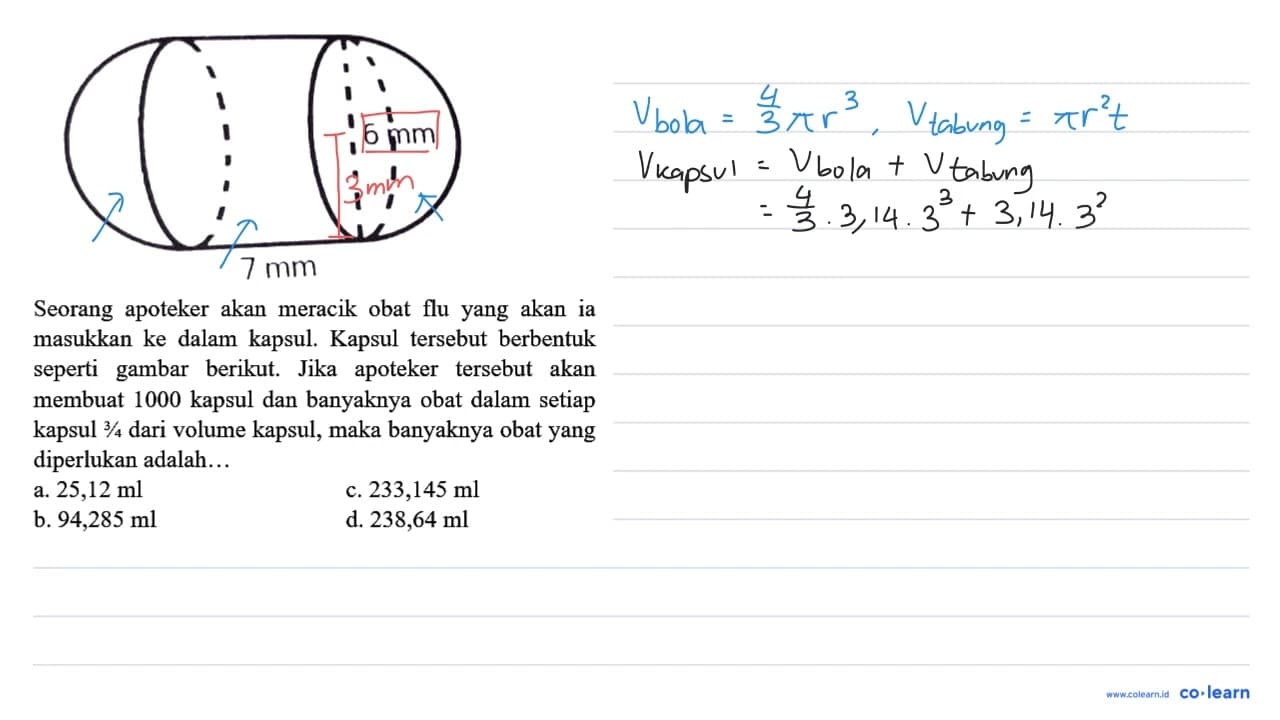 6 mm
3 mm
7 mm
Seorang apoteker akan meracik obat flu yang akan ia
masukkan ke dalam kapsul. Kapsul tersebut berbentuk
seperti gambar berikut. Jika apoteker tersebut akan
membuat 1000 kapsul dan banyaknya obat dalam setiap
kapsul ¾ dari volume kapsul, maka banyaknya obat yang
diperlukan adalah...
a. 25,12 ml
c. 233,145 ml
b. 94,285 ml
d. 238,64 ml
Vbola = 4/3 πr³, Vtabung = πr²t
Vkapsul = Vbola + Vtabung
= 4/3 . 3,14 . 3³ + 3,14 . 3²
www.colearn.id co·learn